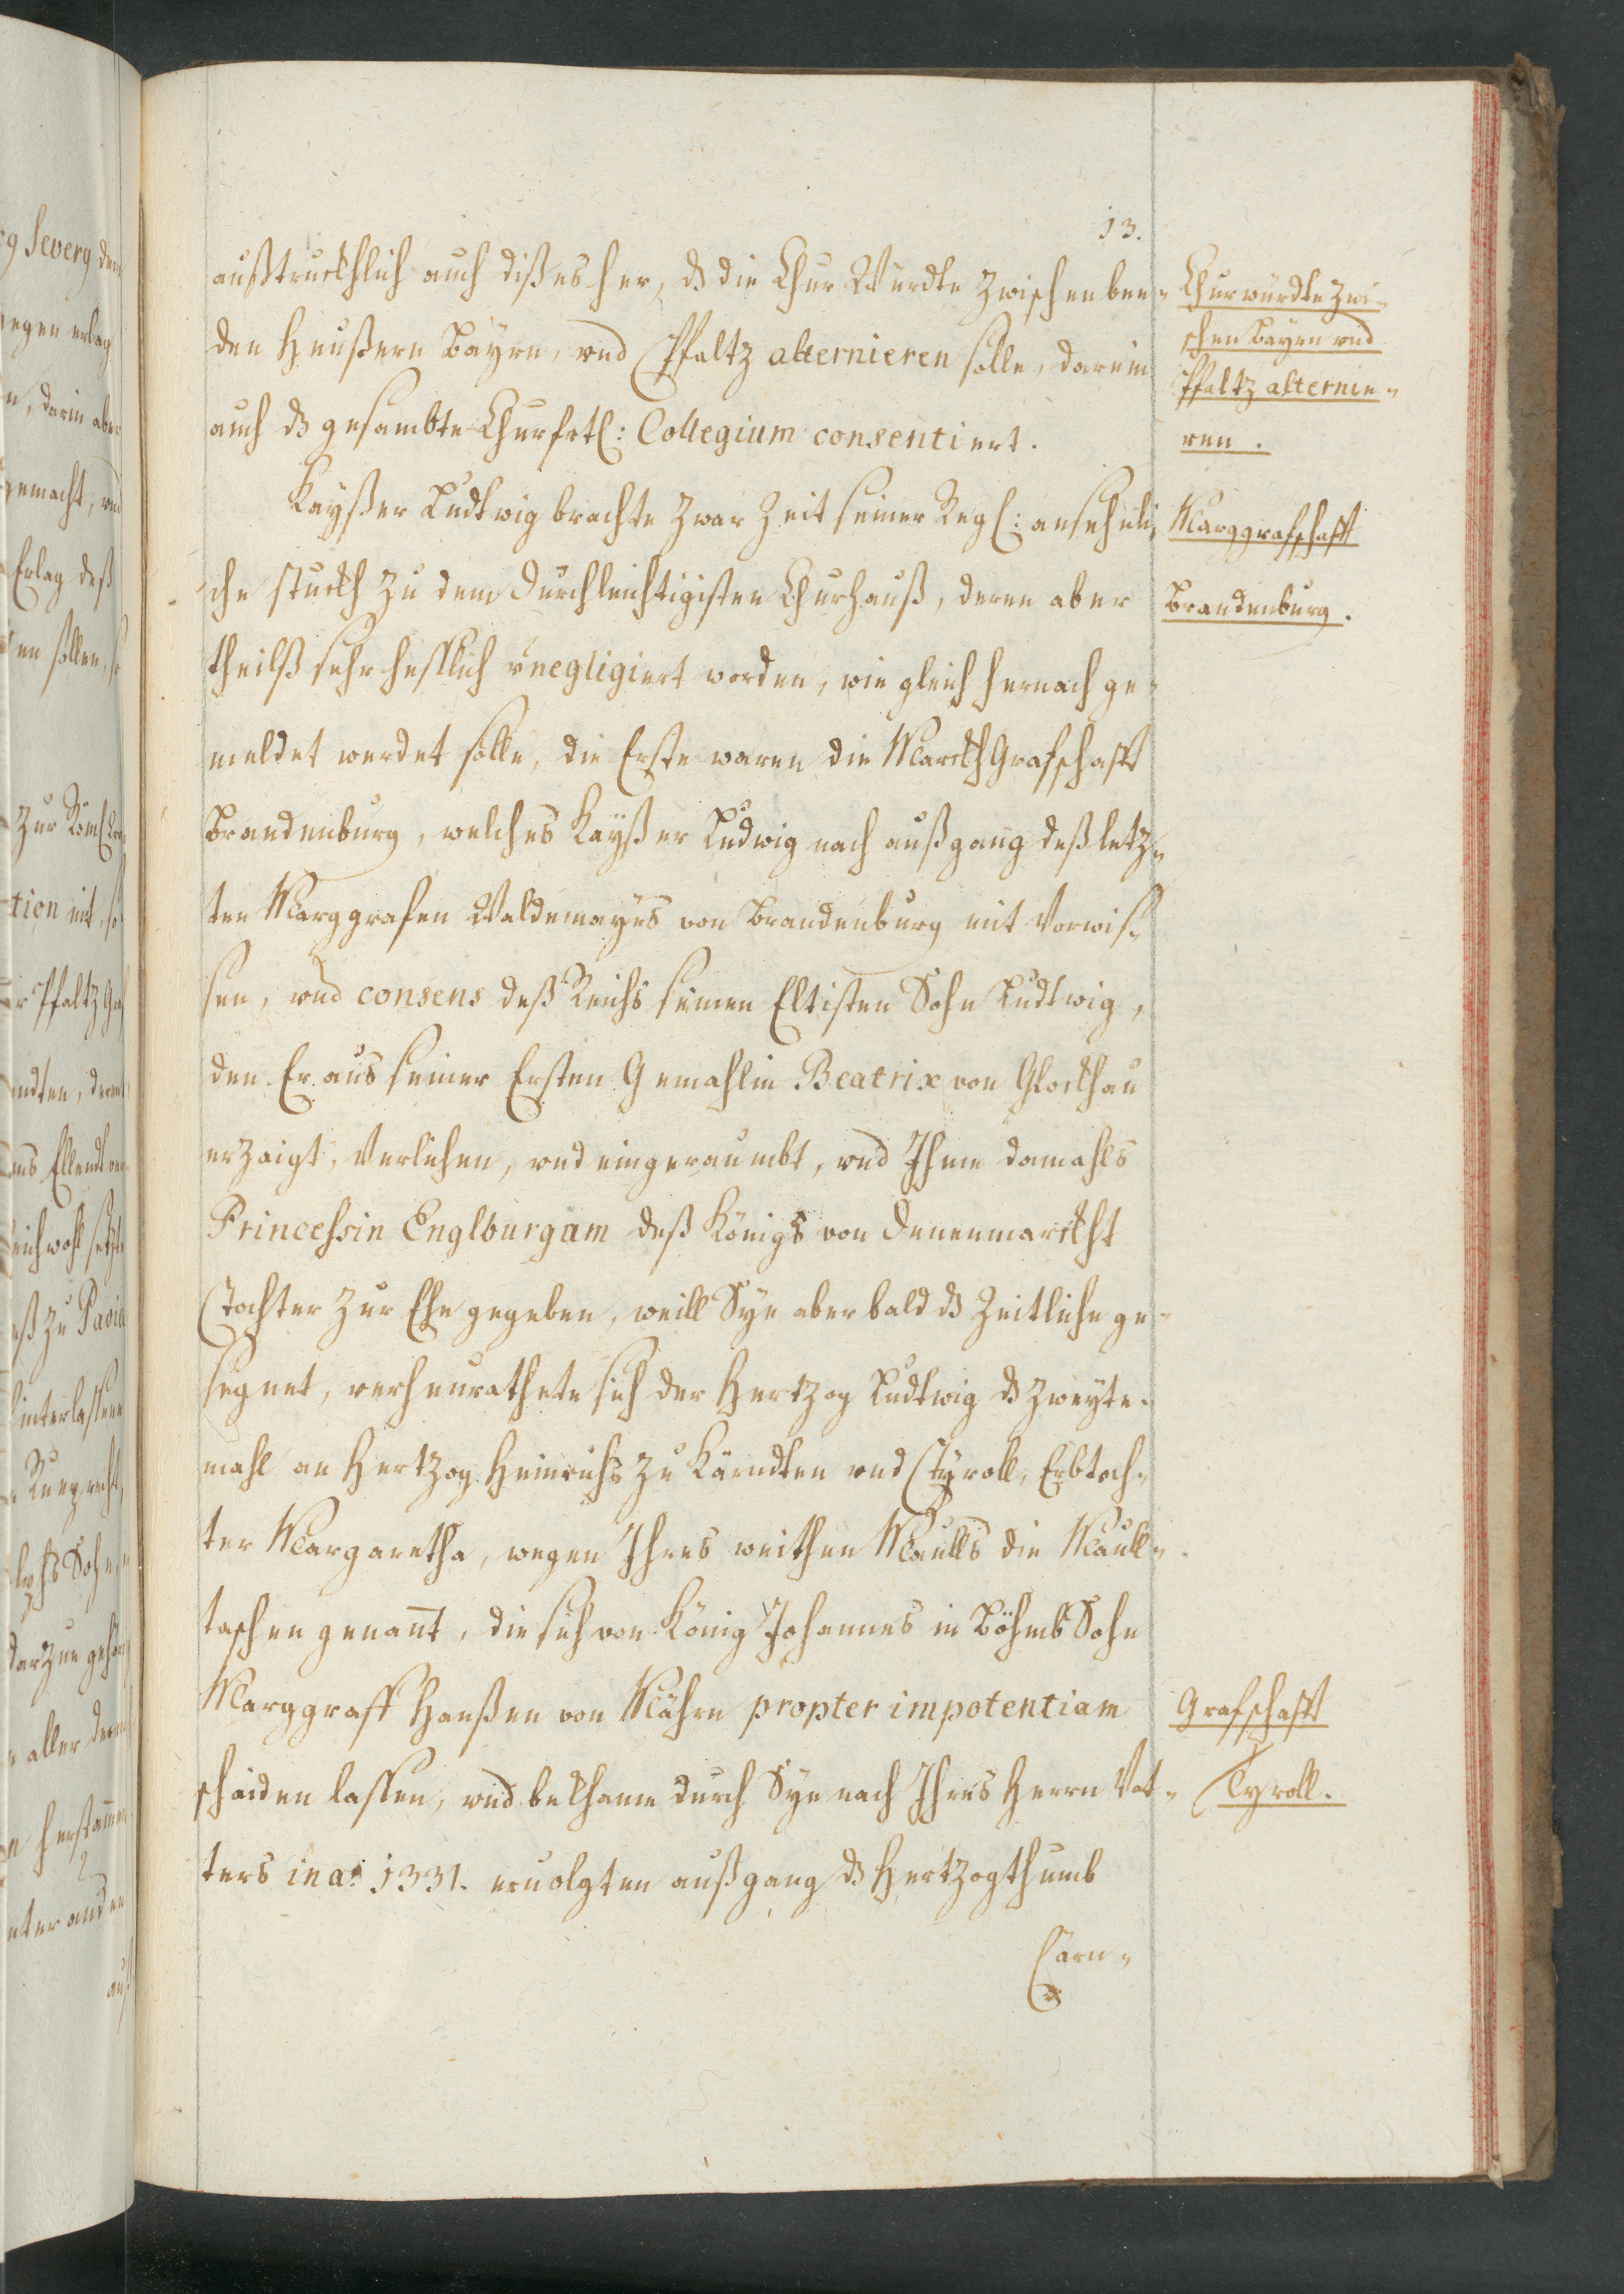 13.
außtruckhlich auch dißes her, dz die Chur Würdte zwischen bee-
den Heußern Bayrn, vnd Pfaltz alternieren solle, darein
auch dz gesambte Churfrtl: Collegium consentiert.
Kayßer Ludtwig brachte zwar Zeit seiner Regl: ansehnli-
che stuckh zu dem Durchleichtigisten Churhauß, deren aber
theilß sehr hesslich negligiert worden, wie gleich hernach ge-
meldet werdet solle, die Erste waren die MarckhGrafschafft
Brandenburg, welches Kayßer Ludwig nach außgang deß letz-
ten Marggrafen Waldemayrs von Brandenburg mit Vorwis-
sen, vnd consens deß Reichs seinen Eltisten Sohn Ludtwig,
den Er aus seiner Ersten Gemahlin Beatrix von Glockhau
erzaigt, Verlichen, vnd eingeraumbt, vnd Ihme damahls
Princessin Englburgam deß Königs von Denenmarckht
Tochter zur Ehe gegeben, weill Sye aber bald dz Zeitliche ge-
segnet, verheurathete sich der Hertzog Ludtwig dz zweyte-
mahl an Hertzog Heinrichs zu Kärndten vnd Tyroll, Erbtoch-
ter Margaretha, wegen Ihres weithen Maulls die Maull-
taschen genant, die sich von König Johannes in Böhmb Sohn
Marggraff Hanßen von Mährn propter impotentiam
schaiden lassen, vnd bekhame durch Sye nach Ihres Herrn Vat-
ters in ao 1331. eruolgten außgang dz Hertzogthumb
Cärn-
Churwürdte zwi-
schen Bayrn vnd
Pfaltz alternie-
ren.
Marggrafschafft
Brandenburg.
Grafschafft
Tyroll.